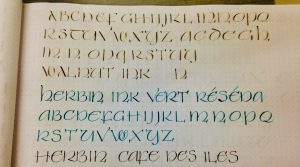 ABCDEFGHIJKLMNOPQ
RSTUVWXYZ ACDEGH
M N O P Q R S T U Y
WALNUT INK N
HERBIN INK VERT RÉSÉDA
ABCDEFGHIJKLMNOPQ
RSTUVWXYZ
HERBIN CAFE DES ILES